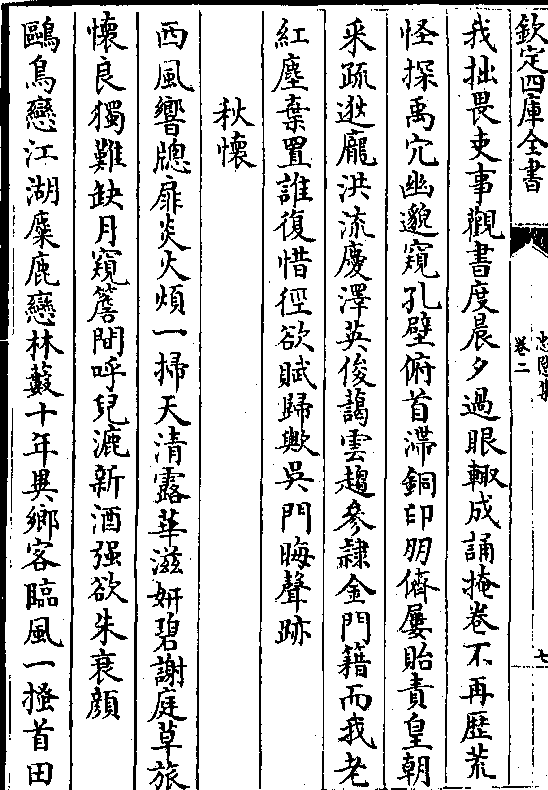 欽定四庫全書
忠隱集
卷二
七
我拙畏吏事觀書度晨夕過眼輙成誦掩卷不再歴荒
怪探禹穴幽邈窺孔壁俯首滯銅印朋儕屢貽責皇朝
采疏逖龎洪流慶澤英俊藹雲趨參隷金門籍而我老
紅塵棄置誰復惜徑欲賦歸歟吳門晦聲跡
秋懐
西風響牕扉炎火煩一掃天清露華滋妍碧謝庭草旅
懐良獨難缺月窺簷間呼兒漉新酒强欲朱衰顔
鷗鳥戀江湖麋鹿戀林藪十年異鄉客臨風一搔首田